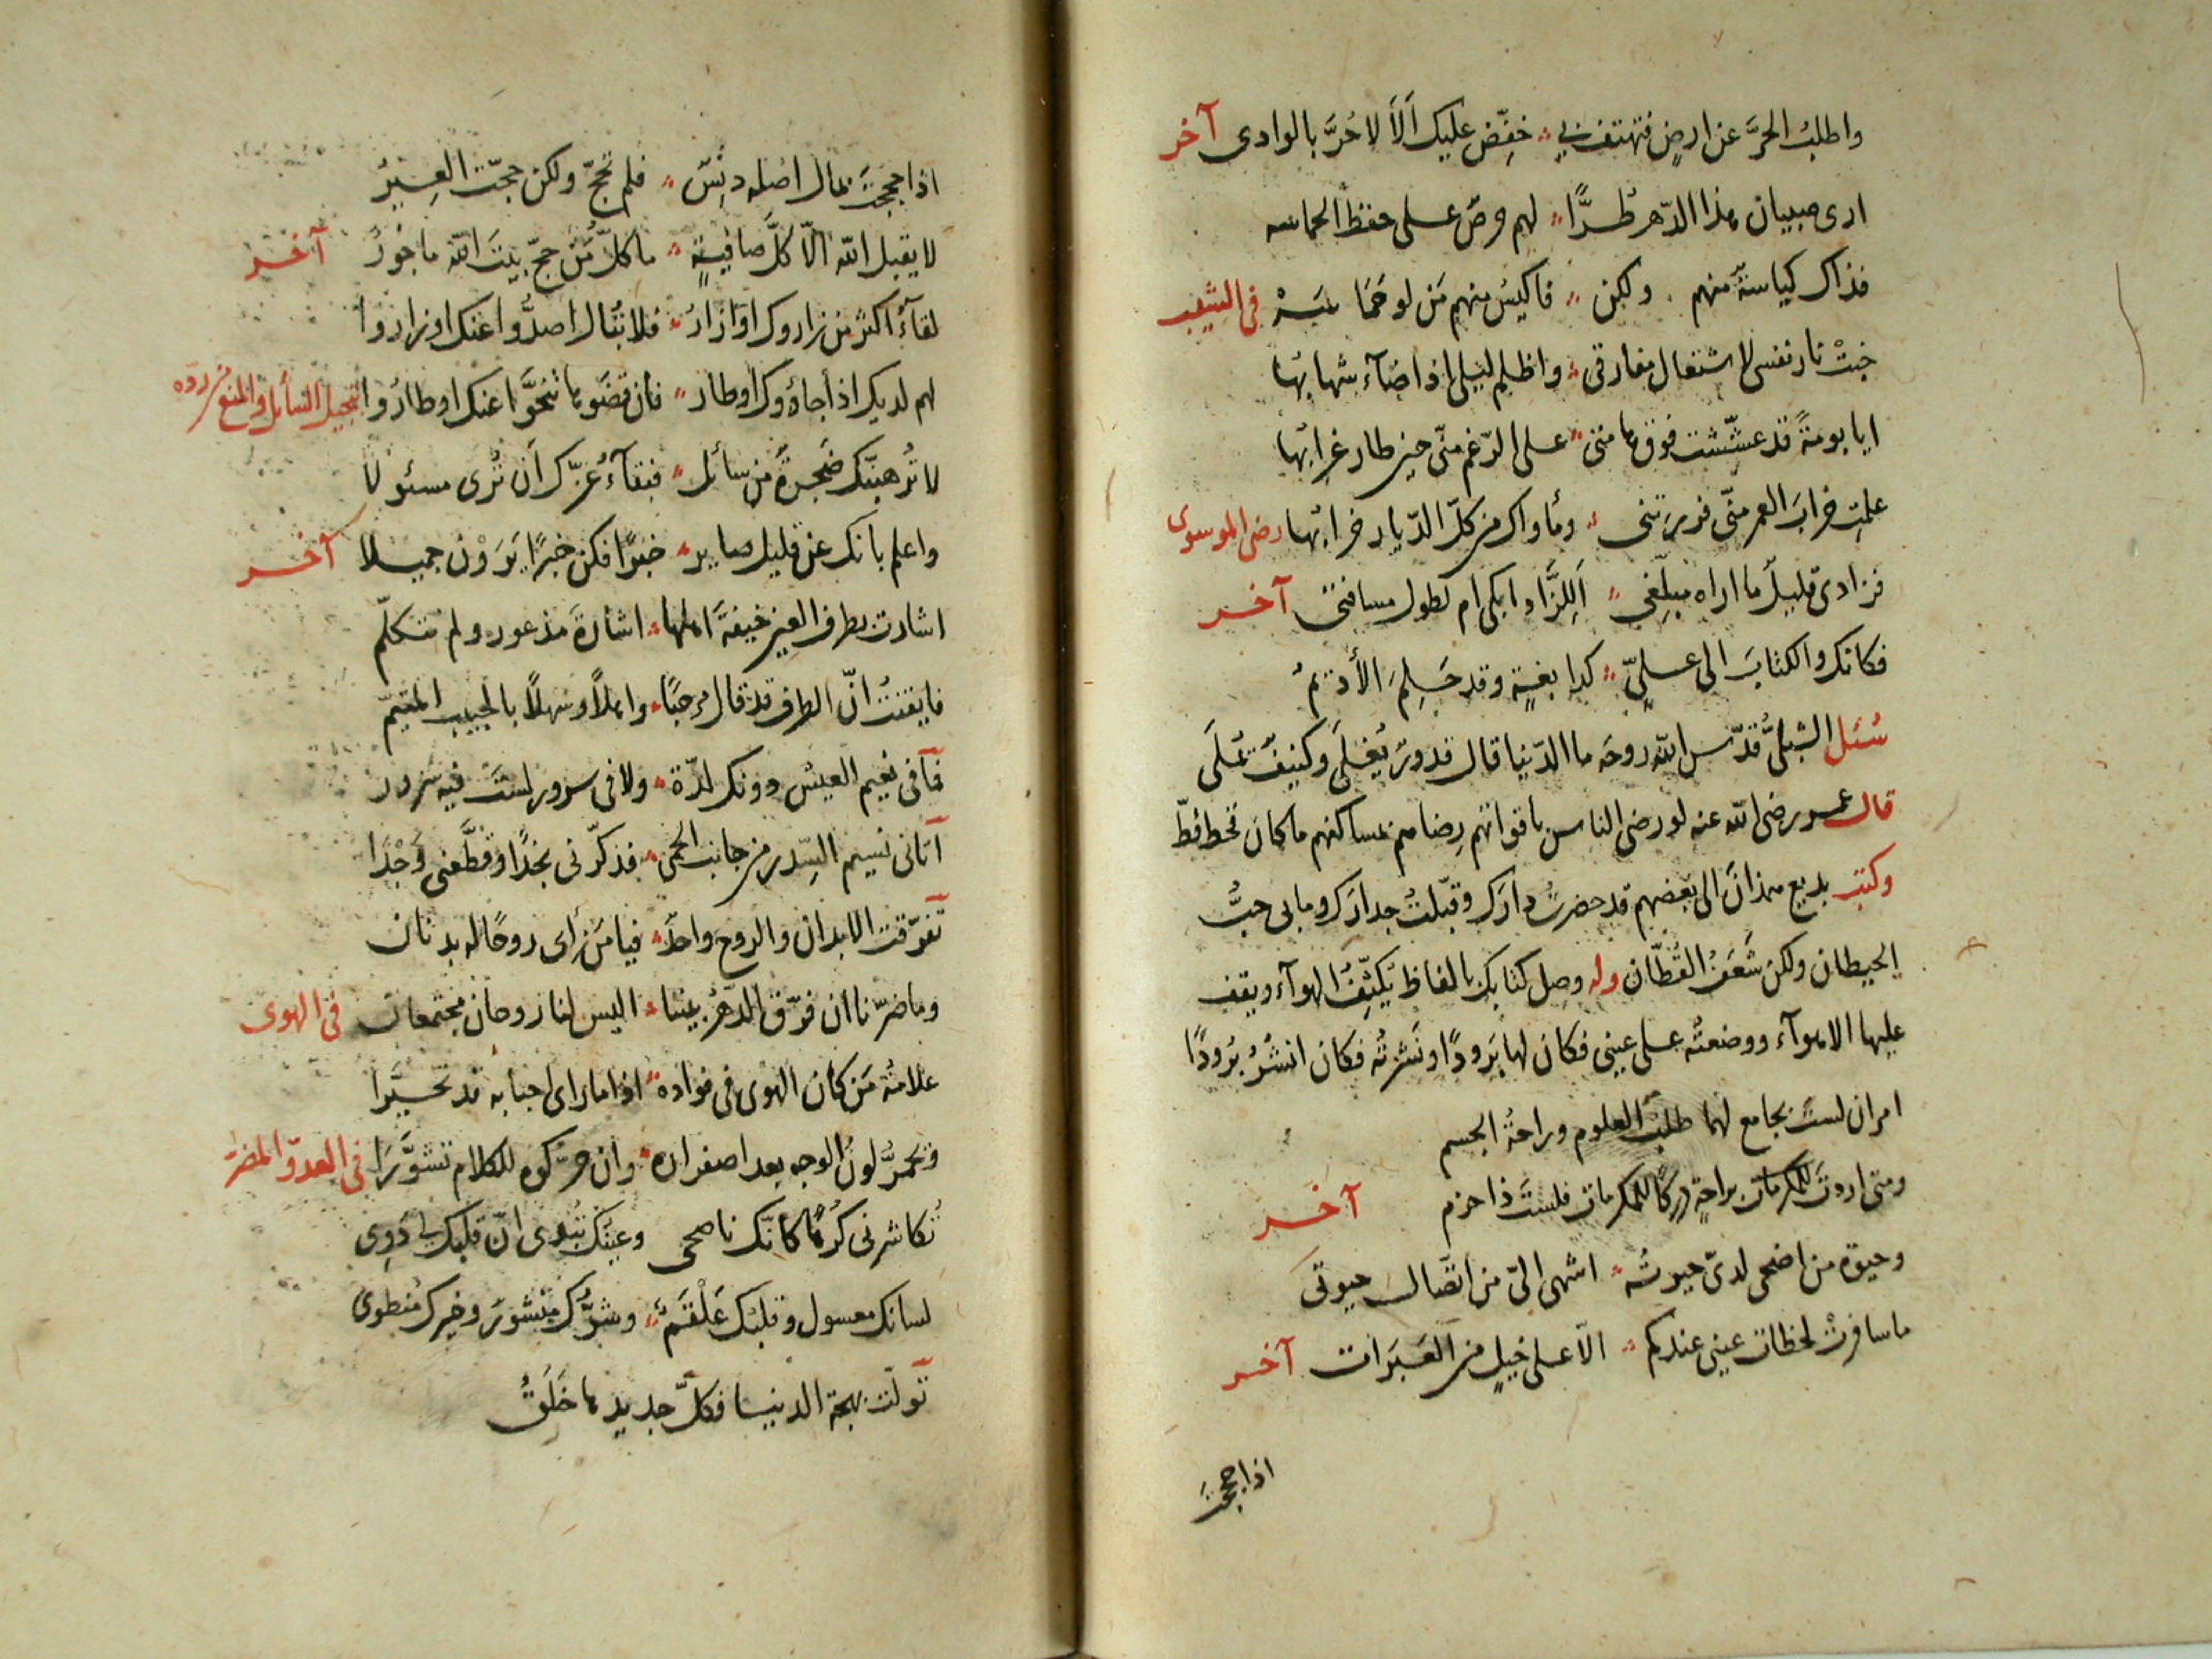 واطلبُ الحرَّ عن ارضٍ فتهتف بي خفّض عليك اَلاَ لا حُرَّ بالوادى آخر
ارى صبيان هذا الدّهر طرًّا لهم حرص على حفظ الحماسه
فذاك كياسةٌ منهم ولكن فاكيس منهم مَن لو حَمَا سَهْ فى الشيب
خبتْ نار نفسى لاشتعال مفارقى واظلم ليلى اذ اضآء شهابُها
ايا بومةً قد عشّشت فوق هامتى على الرّغم منّى حين طار غرابُها
علمتِ خرابَ العمر منّى فزرتنى ومأواك من كلّ الدّيار خرابُها رضى الموسوى
فزادى قليلٌ ما اراه مبلّغى اَللِزَّاد ابكى ام لطول مسافتى آخر
فكانك والكتابَ الى علىٍّ كدابغةٍ وقد حَلِمَ الأديمُ
سُئل الشبلىُّ قدّس الله روحَه ما الدّنيا قال قدورٌ يُغلَى وكنيفٌ يُملَى
قال عمر رضى الله عنه لو رضى الناس باقواتهم رضاهم بمساكنهم ما كان قحط قطّ
وكتب بديع همذان الى بعضهم قد حضرتُ دارَك وقبّلتُ جدارَك وما بى حبُّ
الحيطان ولكن شَعَفُ القُطّان وله وصل كتابك بالفاظ يُكثّفُ الهوآء ويقف
عليها الاهوآء ووضعتُه على عينى فكان لها بَرودًا ونَشرتُه فكان انشُرُ بُرودًا
امران لستَ بجامع لهما طلبُ العلوم وراحةُ الجسم
ومتى اردتَ للمكرمات براحةٍ دركًا للمكرمات فلستَ ذا حزم آخر
وحيوة من اضحى لدىّ حيوتُه اشهى الىّ من اتّصال حيوتى
ما سافرتْ لحظات عينى عندكم الّا على خيلٍ من العَبَرات آخر
اذا حججتَ
اذا حججتَ بمال اصله دنِسٌ فلم تحجّ ولكن حجّت العِيرُ
لا يقبل الله الّا كلَّ صافيةٍ ما كلُّ مَن حجّ بيتَ الله ماجورُ آخر
لقآءُ اكثر من زاروك اوزارُ فلا تُبال اصدُّوا عنك او زاروا
لهم لديك اذا جاؤوك اوطار فان قضَوها تنحَّوا عنك او طارُوا تبجيل السّائل والمنع من ردّه
لا تُرهبنّك ضَجرةٌ من سائل فبقآءُ عزّك اَن تُرى مسئولا
واعلم بانك عن قليل صاير خبرًا فكن خبرًا يَرَوْن جميلا آخر
اشارت بطرف العين خيفةَ اهلها اشارةَ مذعور ولم تتكلّم
فايقنتُ انّ الطرف قد قال مرحبًا واهلًا وسهلًا بالحبيب المتيّم
فما فى نعيم العيش دونك لذّة ولا فى سرور لستَ فيه سرور
اتانى نسيم السِّدر من جانب الحمى فذكّرنى نجدًا وقطّعنى وَجْدَا
تفرّقت الابدان والروح واحدٌ فيا مَن رأى روحًا له بدنان
وما ضرّنا ان فرّق الدّهرُ بيننا اليس لنا روحان مجتمعان فى الهوى
علامةُ مَن كان الهوى فى فواده اذا ما راى احبابه قد تحيَّرا
وتحمرُّ لونُ الوجه بعد اصفراره وان حرّكوه للكلام تشوَّرَا فى العدوّ المضر
تُكاشرنى كُرهًا كانّك ناصحى وعينُك تُبدى انّ قلبك لى دَوِى
لسانك معسول وقلبُك عَلْقَمٌ وشرُّك منشورٌ وخيرك مُنطوى
تولّت بهجة الدنيا فكلُّ جديدها خَلَقُ